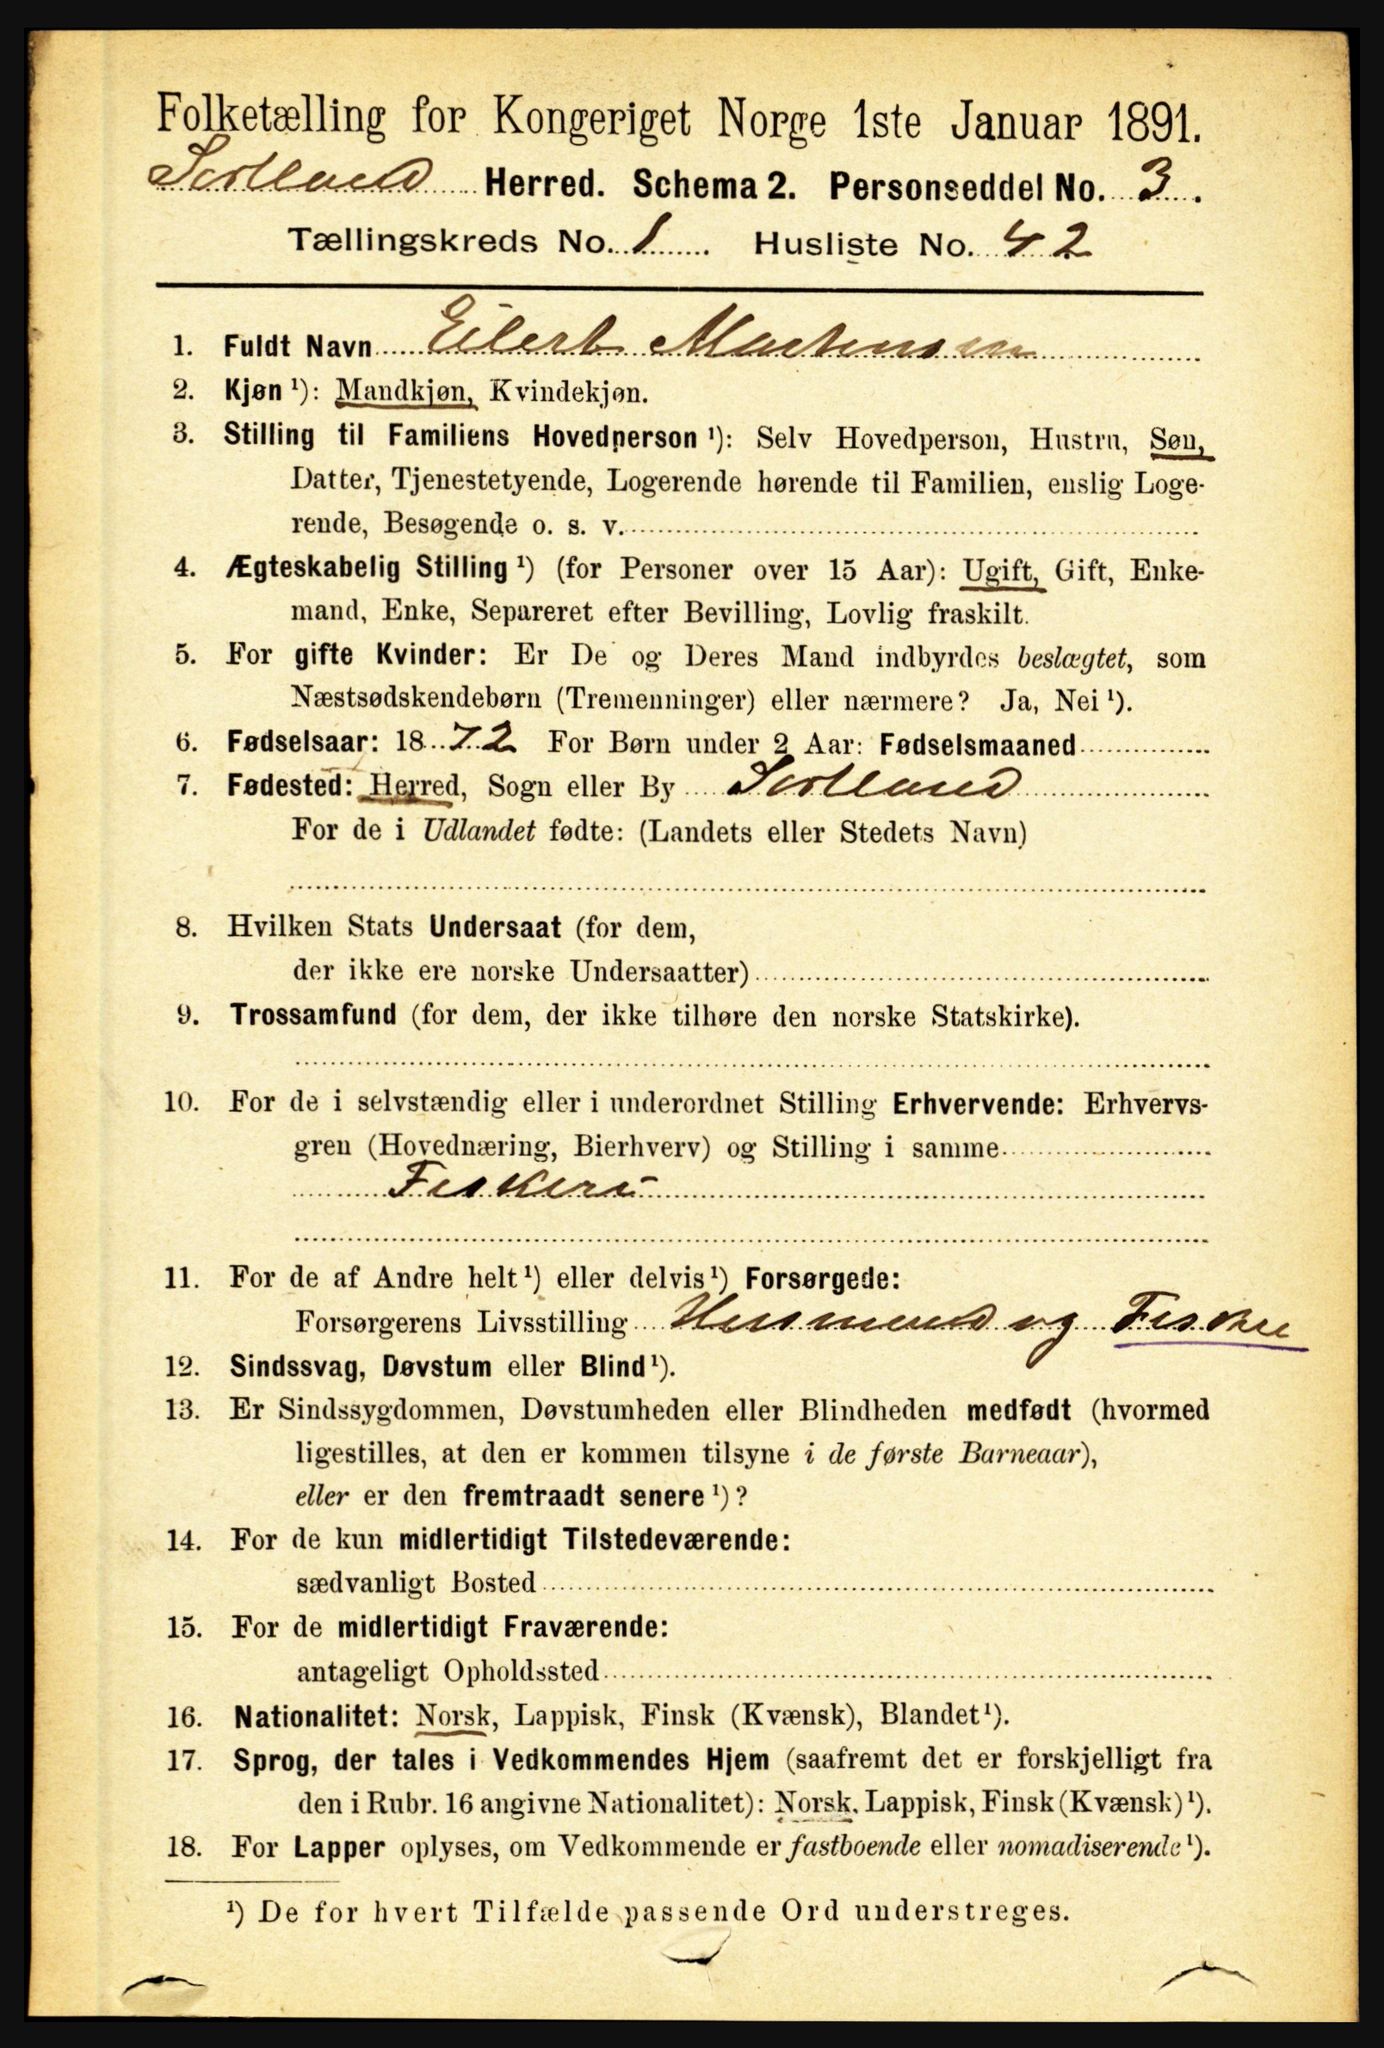 Folketælling for Kongeriget Norge 1ste Januar 1891.
Sortland Herred. Schema 2. Personseddel No. 3.
Tællingskreds No. 1 Husliste No. 42
1. Fuldt Navn Eilert Martinsen
2. Kjøn ¹): Mandkjøn, Kvindekjøn.
3. Stilling til Familiens Hovedperson ¹): Selv Hovedperson, Hustru, Søn,
Datter, Tjenestetyende, Logerende hørende til Familien, enslig Loge-
rende, Besøgende o. s. v.
4. Ægteskabelig Stilling ¹) (for Personer over 15 Aar): Ugift, Gift, Enke-
mand, Enke, Separeret efter Bevilling, Lovlig fraskilt.
5. For gifte Kvinder: Er De og Deres Mand indbyrdes beslægtet, som
Næstsødskendebørn (Tremenninger) eller nærmere? Ja, Nei ¹).
6. Fødselsaar: 1872 For Børn under 2 Aar: Fødselsmaaned
7. Fødested: Herred, Sogn eller By Sortland
For de i Udlandet fødte: (Landets eller Stedets Navn)
8. Hvilken Stats Undersaat (for dem,
der ikke ere norske Undersaatter)
9. Trossamfund (for dem, der ikke tilhøre den norske Statskirke).
10. For de i selvstændig eller i underordnet Stilling Erhvervende: Erhvervs-
gren (Hovednæring, Bierhverv) og Stilling i samme
Fiskeri
11. For de af Andre helt ¹) eller delvis ¹) Forsørgede:
Forsørgerens Livsstilling Husmand og Fisker
12. Sindssvag, Døvstum eller Blind ¹).
13. Er Sindssygdommen, Døvstumheden eller Blindheden medfødt (hvormed
ligestilles, at den er kommen tilsyne i de første Barneaar),
eller er den fremtraadt senere ¹)?
14. For de kun midlertidigt Tilstedeværende:
sædvanligt Bosted
15. For de midlertidigt Fraværende:
antageligt Opholdssted
16. Nationalitet: Norsk, Lappisk, Finsk (Kvænsk), Blandet ¹).
17. Sprog, der tales i Vedkommendes Hjem (saafremt det er forskjelligt fra
den i Rubr. 16 angivne Nationalitet): Norsk, Lappisk, Finsk (Kvænsk) ¹).
18. For Lapper oplyses, om Vedkommende er fastboende eller nomadiserende ¹).
¹) De for hvert Tilfælde passende Ord understreges.